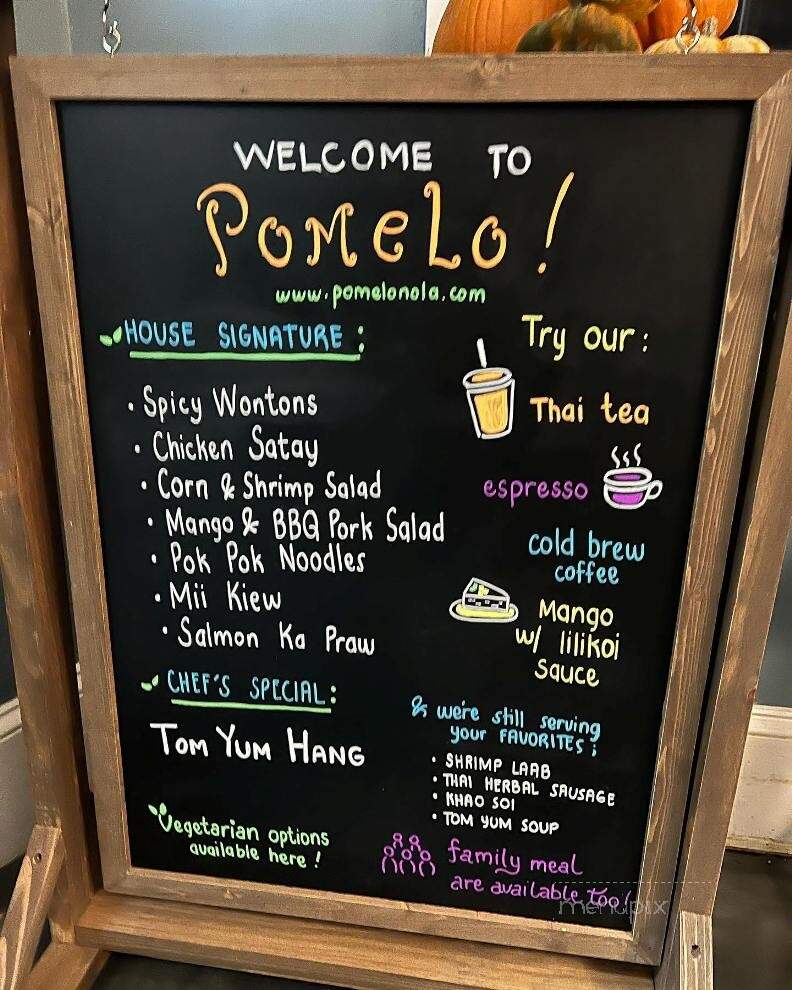 WELCOME TO
POMELO!
www.pomelonola.com
HOUSE SIGNATURE:
• Spicy Wontons
• Chicken Satay
• Corn & Shrimp Salad
• Mango & BBQ Pork Salad
• Pok Pok Noodles
• Mii Kiew
• Salmon Ka Praw
CHEF'S SPECIAL:
TOM YUM HANG
Vegetarian options
available here!
Try our:
Thai tea
espresso
cold brew
coffee
Mango
w/ lilikoi
sauce
& we're still serving
your FAVORITES:
• SHRIMP LAAB
• THAI HERBAL SAUSAGE
• KHAO SOI
• TOM YUM SOUP
family meal
are available too!
menupix